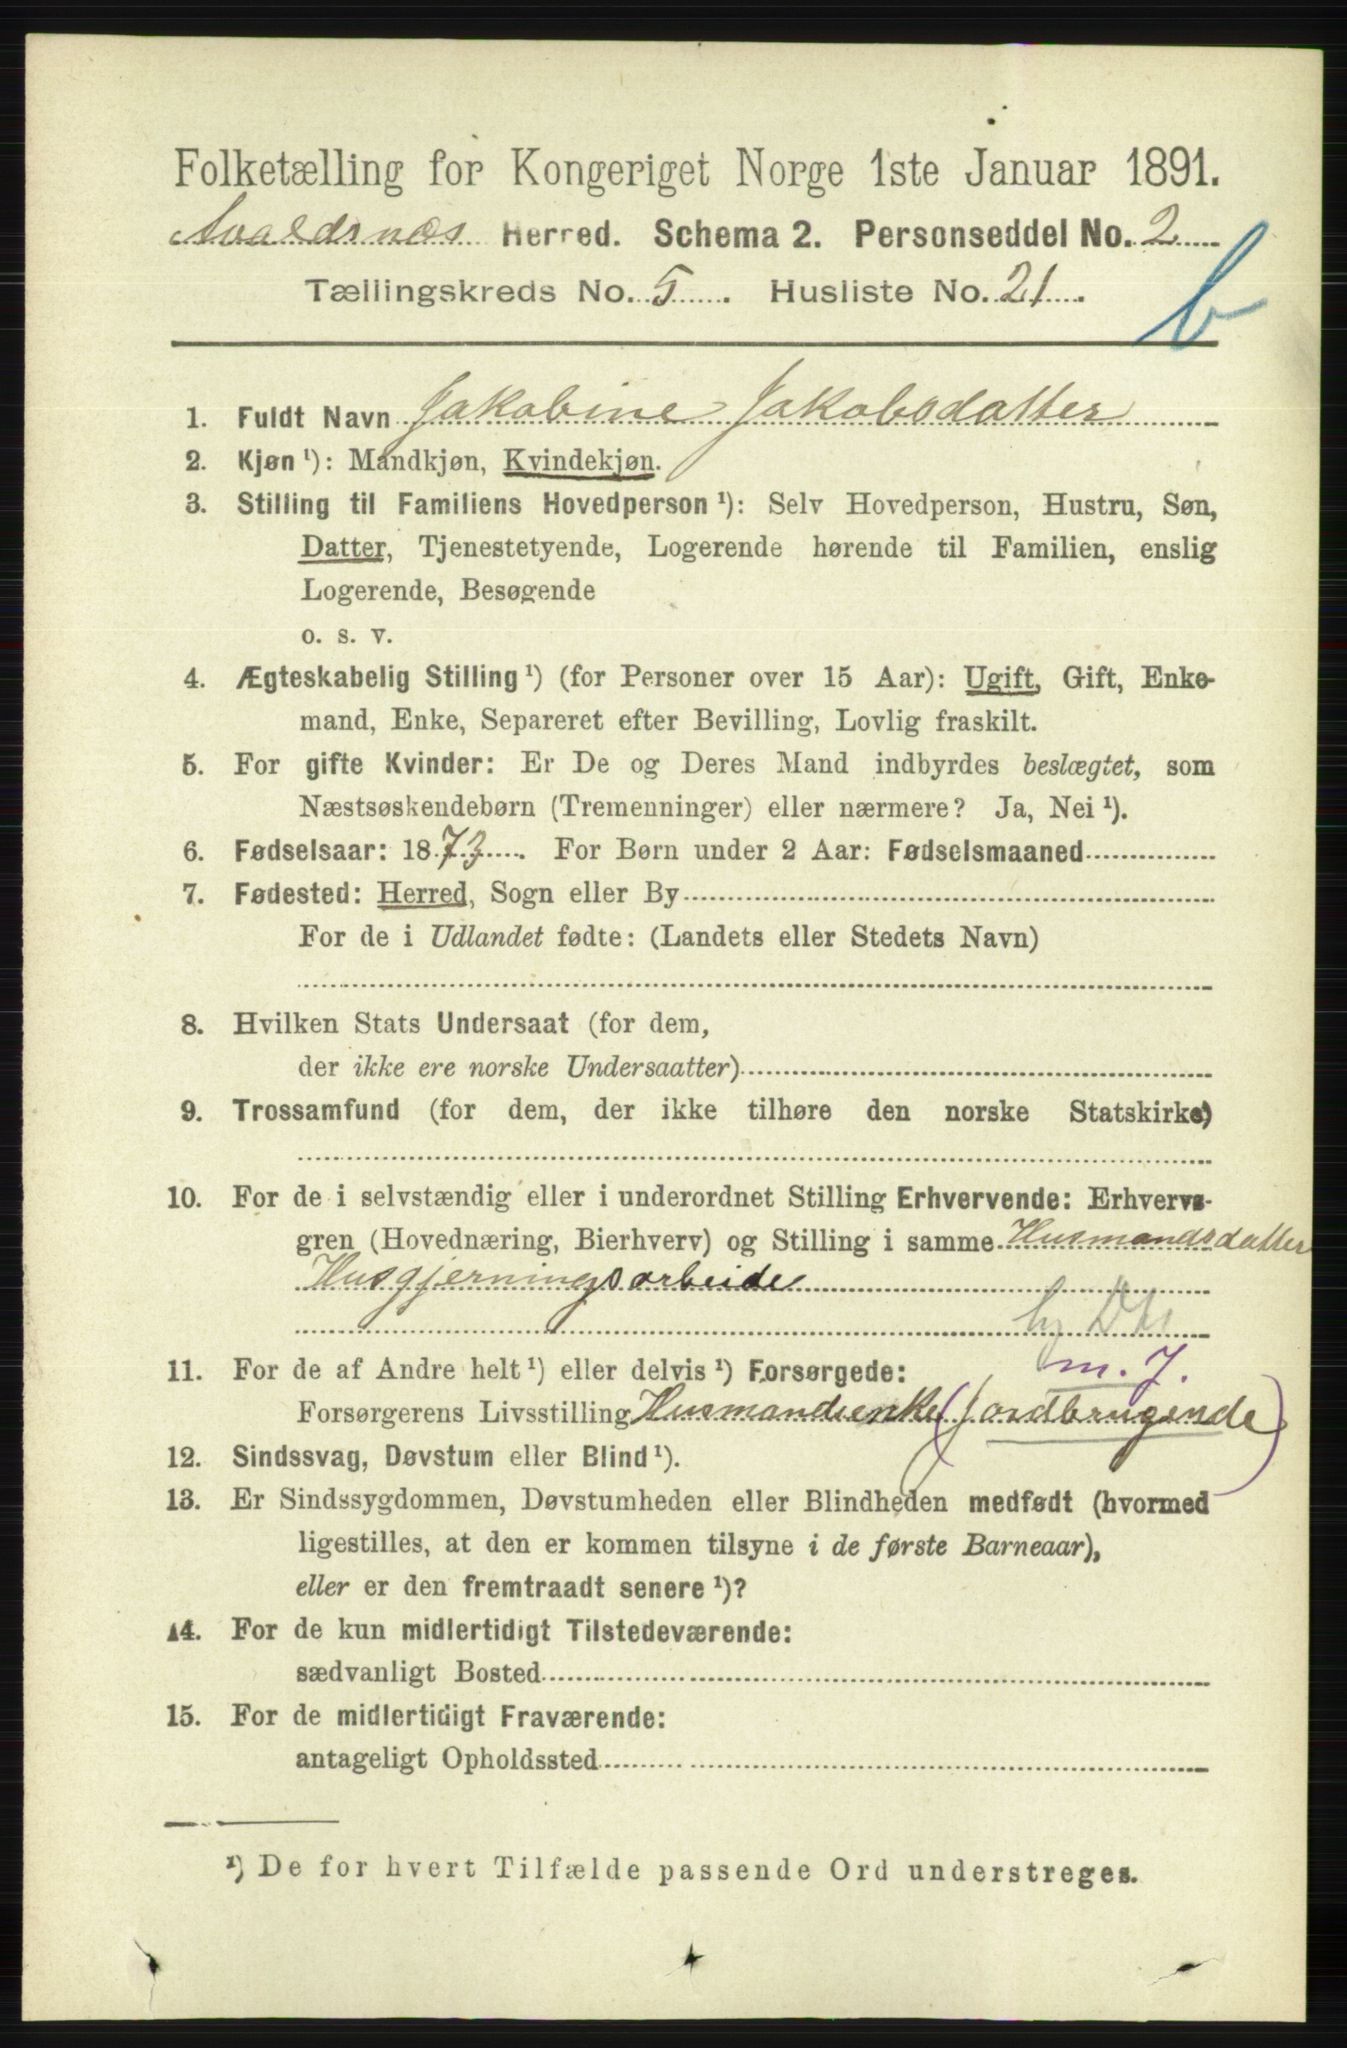 Folketælling for Kongeriget Norge 1ste Januar 1891.
Avaldsnæs Herred. Schema 2. Personseddel No. 2
Tællingskreds No. 5. Husliste No. 21.
b
1. Fuldt Navn Jakobine Jakobsdatter
2. Kjøn ¹): Mandkjøn, Kvindekjøn.
3. Stilling til Familiens Hovedperson ¹): Selv Hovedperson, Hustru, Søn,
Datter, Tjenestetyende, Logerende hørende til Familien, enslig
Logerende, Besøgende
o. s. v.
4. Ægteskabelig Stilling ¹) (for Personer over 15 Aar): Ugift, Gift, Enke-
mand, Enke, Separeret efter Bevilling, Lovlig fraskilt.
5. For gifte Kvinder: Er De og Deres Mand indbyrdes beslægtet, som
Næstsøskendebørn (Tremenninger) eller nærmere? Ja, Nei ¹).
6. Fødselsaar: 1873. For Børn under 2 Aar: Fødselsmaaned
7. Fødested: Herred, Sogn eller By
For de i Udlandet fødte: (Landets eller Stedets Navn)
8. Hvilken Stats Undersaat (for dem,
der ikke ere norske Undersaatter)
9. Trossamfund (for dem, der ikke tilhøre den norske Statskirke)
10. For de i selvstændig eller i underordnet Stilling Erhvervende: Erhvervs-
gren (Hovednæring, Bierhverv) og Stilling i samme Husmandsdatter
Husgjerningsarbeide
11. For de af Andre helt ¹) eller delvis ¹) Forsørgede: m. J.
Forsørgerens Livsstilling Husmandsenke (jordbrugende)
12. Sindssvag, Døvstum eller Blind ¹).
13. Er Sindssygdommen, Døvstumheden eller Blindheden medfødt (hvormed
ligestilles, at den er kommen tilsyne i de første Barneaar),
eller er den fremtraadt senere ¹)?
14. For de kun midlertidigt Tilstedeværende:
sædvanligt Bosted
15. For de midlertidigt Fraværende:
antageligt Opholdssted
¹) De for hvert Tilfælde passende Ord understreges.